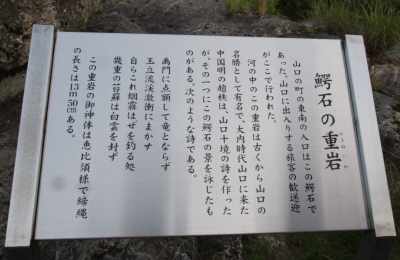 鰐石の重岩
山口の町の東南の入口はこの鰐石で
あった。山口に出入りする旅客の歓送迎
がここで行われた。
河の中のこの重岩は古くから山口の
名勝として有名で、大内時代山口に来た
中国明の趙秩は、山口十境の詩を作った
が、その一つにこの鰐石の景を詠じたも
のがある。次のような詩である。
禹門に点額して竜とならず
玉立渓激衝にまかす
自らこれ烟霧はぜを釣る処
幾重の苔蘚は白雲を封ず
この重岩の御神体は恵比須様で締縄
の長さは13m50cmある。